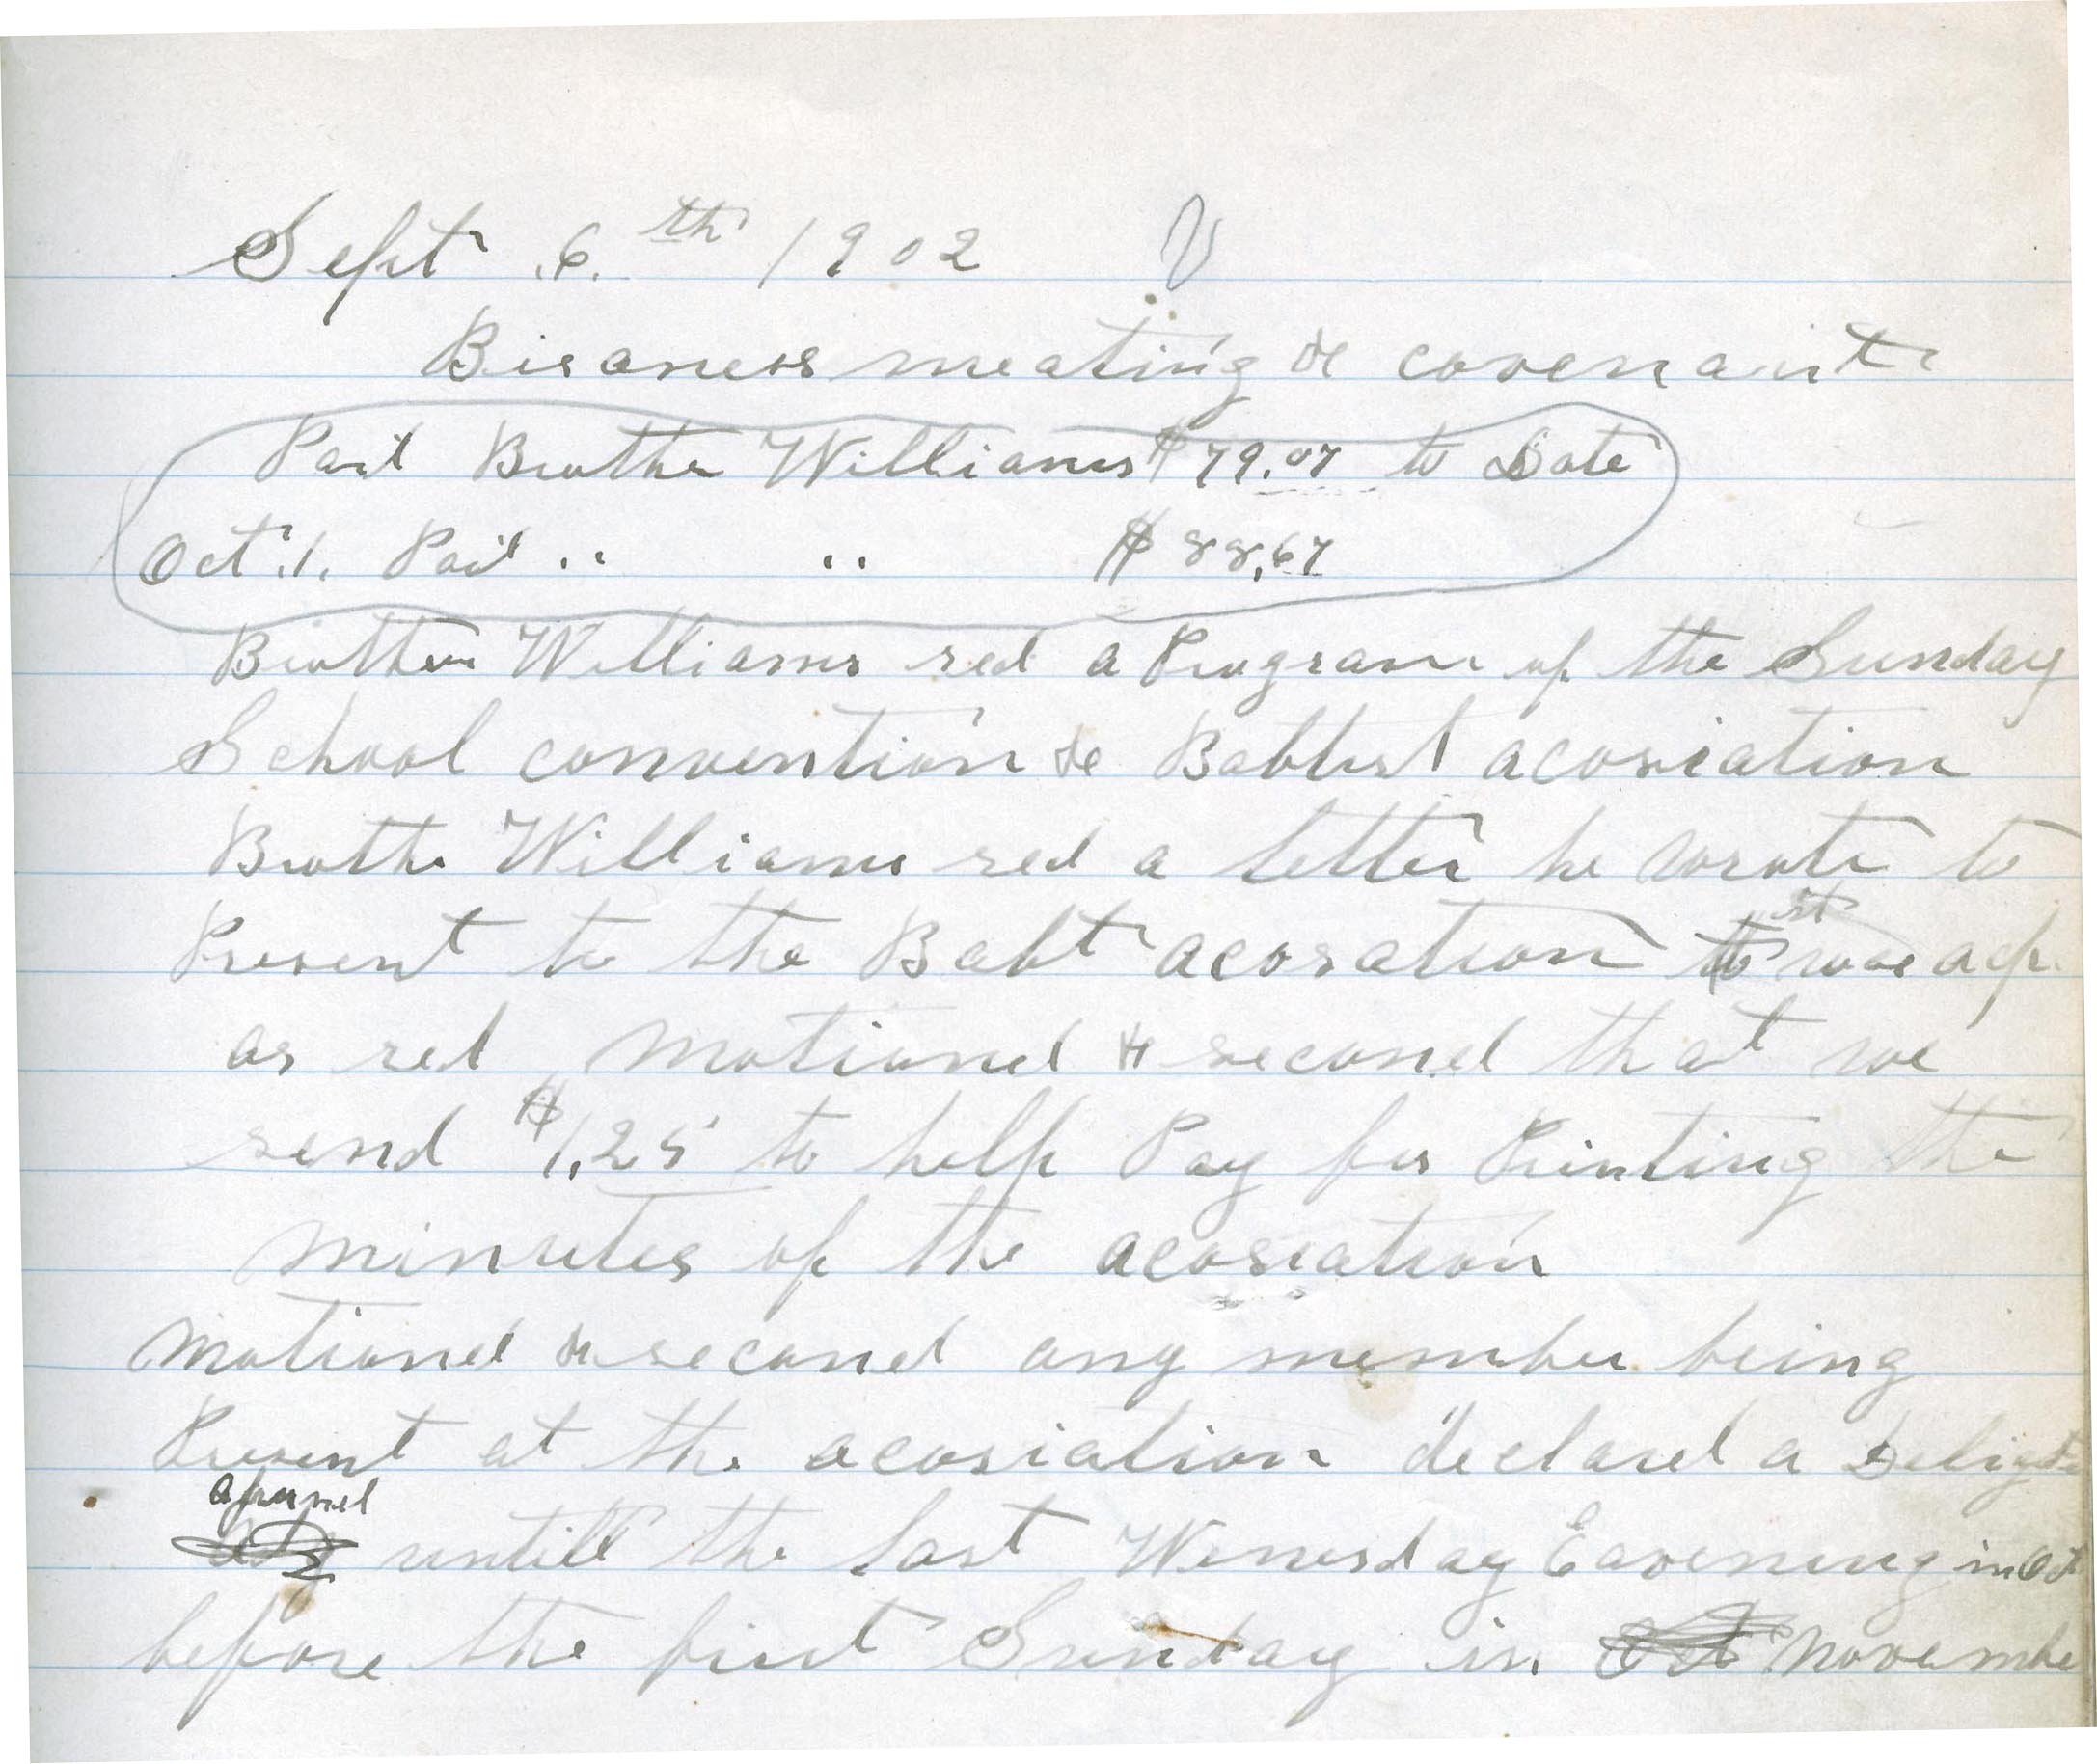 Sept .6.th 1902
Bisaness meating & covenant
Paid Brother Williams $79.07 to Date
Oct .1. Paid " " $88.67
Brother Williams red a Program of the Sunday
School convention & Babtist acosiation
Brother Williams red a letter he wrote to
Present to the Babt acosation it was acp.
as red motioned & second that we
send $1.25 to help Pay for Printing the
minutes of the acosiation
motioned & second any member being
Present at the acosiation declared a Deligate
untill the last Wenesday Eavening in Oct
before the first Sunday in Oct November